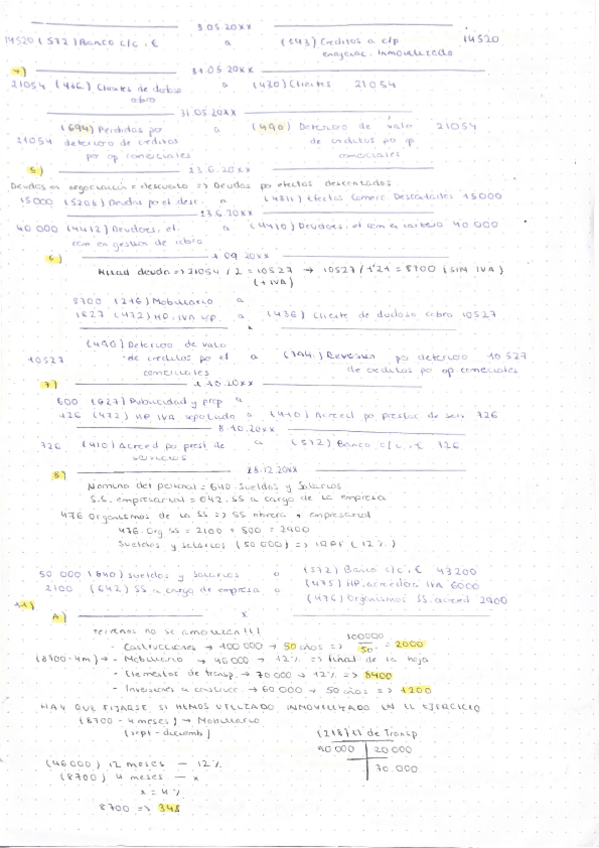 3.05.20XX
14520 (572) Banco c/c. € a (543) Creditos a c/p 14520
enajenac. Inmovilizado
4) 31.05.20XX
21054 (436) Clientes de dudoso a (430) Clientes 21054
cobro
31.05.20XX
(694) Perdidas po a (490) Deterioro de valo 21054
21054 deterioro de creditos de creditos po op
po op comerciales comerciales
5) 23.6.20XX
Deudas en negociación = descuento => Deudas po efectos descontados
15000 (5208) Deudas po efe desc. a (4311) Efectos Comerc. Descontados 15000
23.6.20XX
40 000 (4412) Deudores, ef. a (4410) Deudores, ef com en cartera 40 000
com en gestion de cobro
6) 1.09.20XX
Mitad deuda => 21054 / 2 = 10527 → 10527 / 1'21 = 8700 (SIN IVA)
(+ IVA)
8700 (216) Mobiliario a
1827 (472) HP. IVA sop. a (436) Cliente de dudoso cobro 10527
(490) Deterioro de valo
10527 de creditos po op a (794.) Reversion po deterioro 10 527
comerciales de creditos po op comerciales
7.) 1.10.20XX
600 (627) Publicidad y prop a
126 (472) HP IVA soportado a (410) Acreed po prestac de serv 726
8.10.20XX
726 (410) Acreed po prest de a (572) Banco c/c. € 726
servicios
8) 28.12.20XX
Nomina del personal = 640. Sueldos y Salarios
S.S. empresarial = 642. SS a cargo de la empresa
476 Organismos de la SS => SS obrera + empresarial
476. Org SS = 2100 + 800 = 2900
Sueldos y salarios (50 000) => IRPF (12%)
50 000 (640) Sueldos y Salarios a (572) Banco c/c. € 43200
2100 (642) SS a cargo de empresa a (475) HP. acreedora IVA 6000
(476) Organismos SS. acreed 2900
11)
A) x
Terrenos no se amortiza!!!
- Construcciones → 100 000 → 50 años => 100000 / 50 = 2000
(8700 - 4m) → - Mobiliario → 46 000 → 12% => Final de la hoja
- Elementos de transp. → 70 000 → 12% => 8400
- Inversiones a construcc. → 60 000 → 50 años => 1200
HAY QUE FIJARSE SI HEMOS UTILIZADO INMOVILIZADO EN EL EJERCICIO
(8700 - 4 meses) → Mobiliario
(sept - diciemb) (218) El de Transp
90 000 | 20 000
70.000
(46000) 12 meses — 12%
(8700) 4 meses — x
x = 4%
8700 => 348